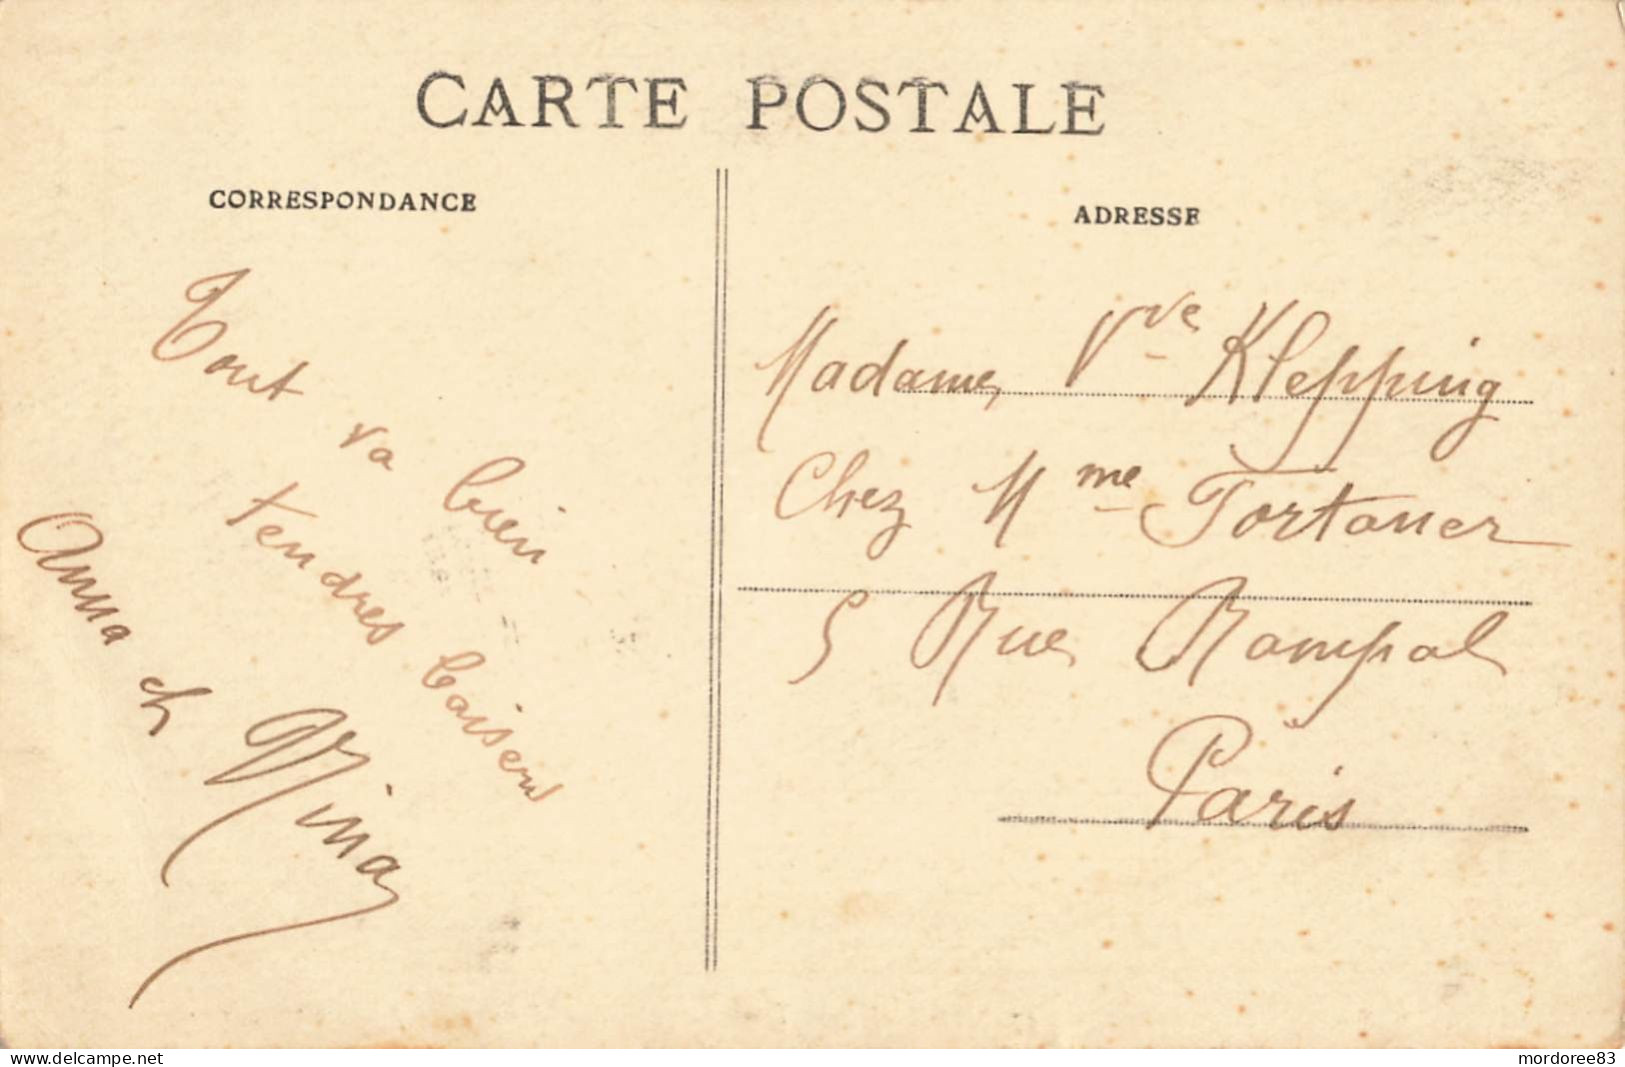 CARTE POSTALE
CORRESPONDANCE
ADRESSE
Tout va bien
tendres baisers
Anna et Nina
Madame Vve Klepping
Chez Mme Tortauer
5 Rue Rampal
Paris
www.delcampe.net
mordoree83